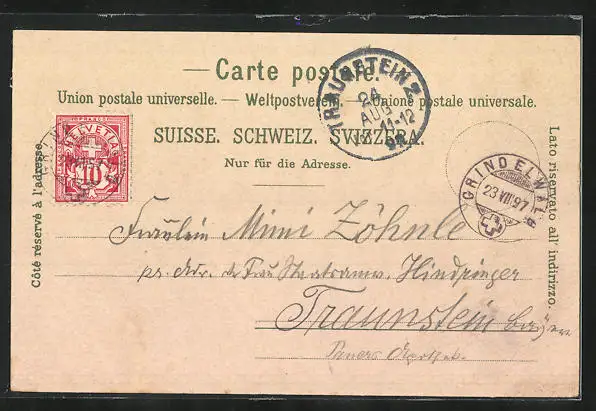 — Carte postale. —
Union postale universelle. — Weltpostverein. — Unione postale universale.
SUISSE. SCHWEIZ. SVIZZERA.
Nur für die Adresse.
Côté réservé à l'adresse.
Lato riservato all' indirizzo.
FRANCO
HELVETIA
10
TRAUNSTEIN 2
24
AUG
11-12
97
GRINDELWALD
23 VIII 97
Fräulein Mimi Zöhnle
pr. Adr. de Frau Hindringer
Traunstein